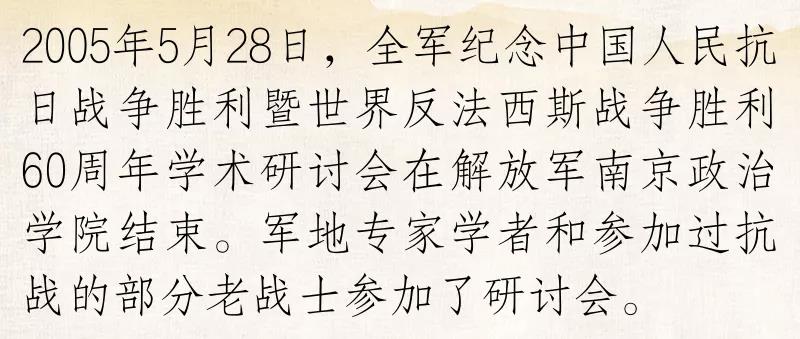 2005年5月28日，全军纪念中国人民抗
日战争胜利暨世界反法西斯战争胜利
60周年学术研讨会在解放军南京政治
学院结束。军地专家学者和参加过抗
战的部分老战士参加了研讨会。